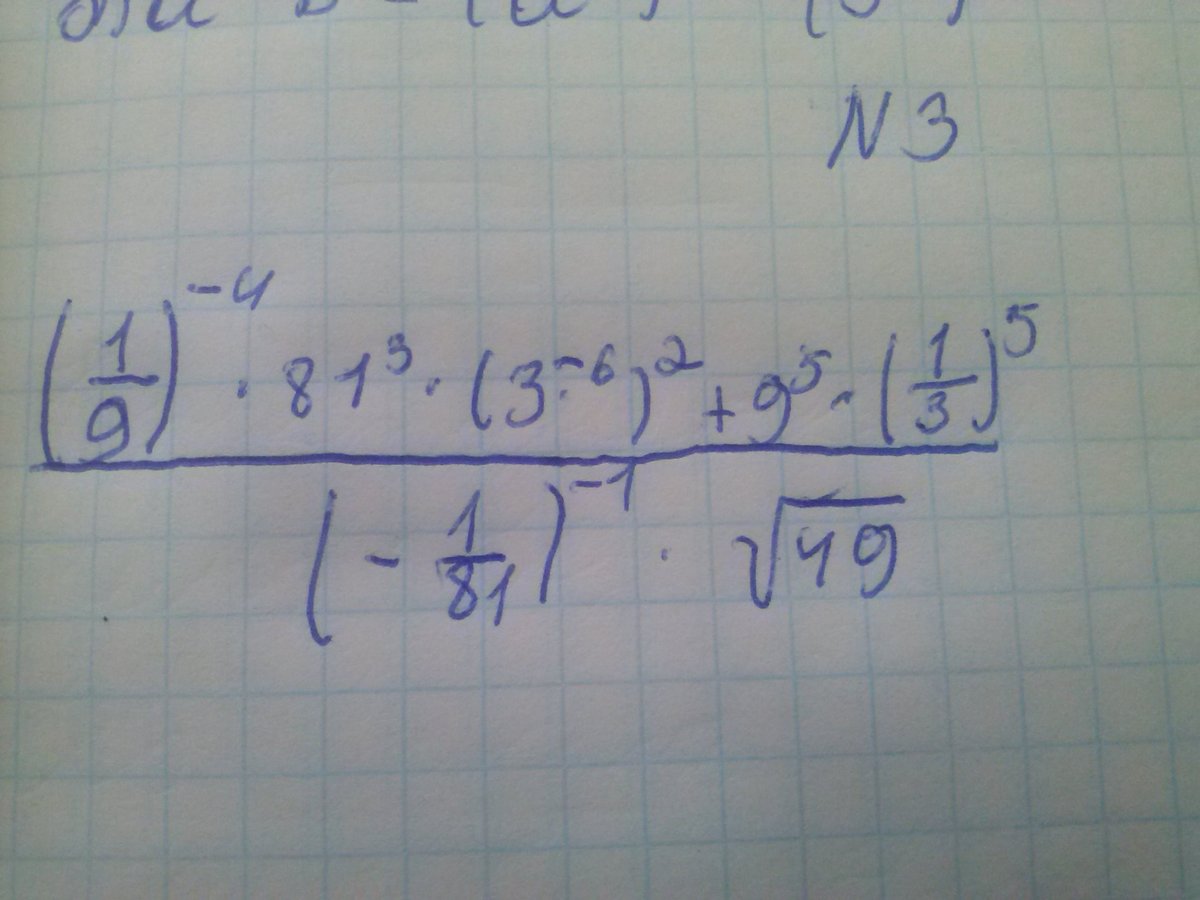 N 3
(1/9)^-4 · 81^3 · (3^-6)^2 + 9^5 · (1/3)^5
(-1/81)^-1 · √49